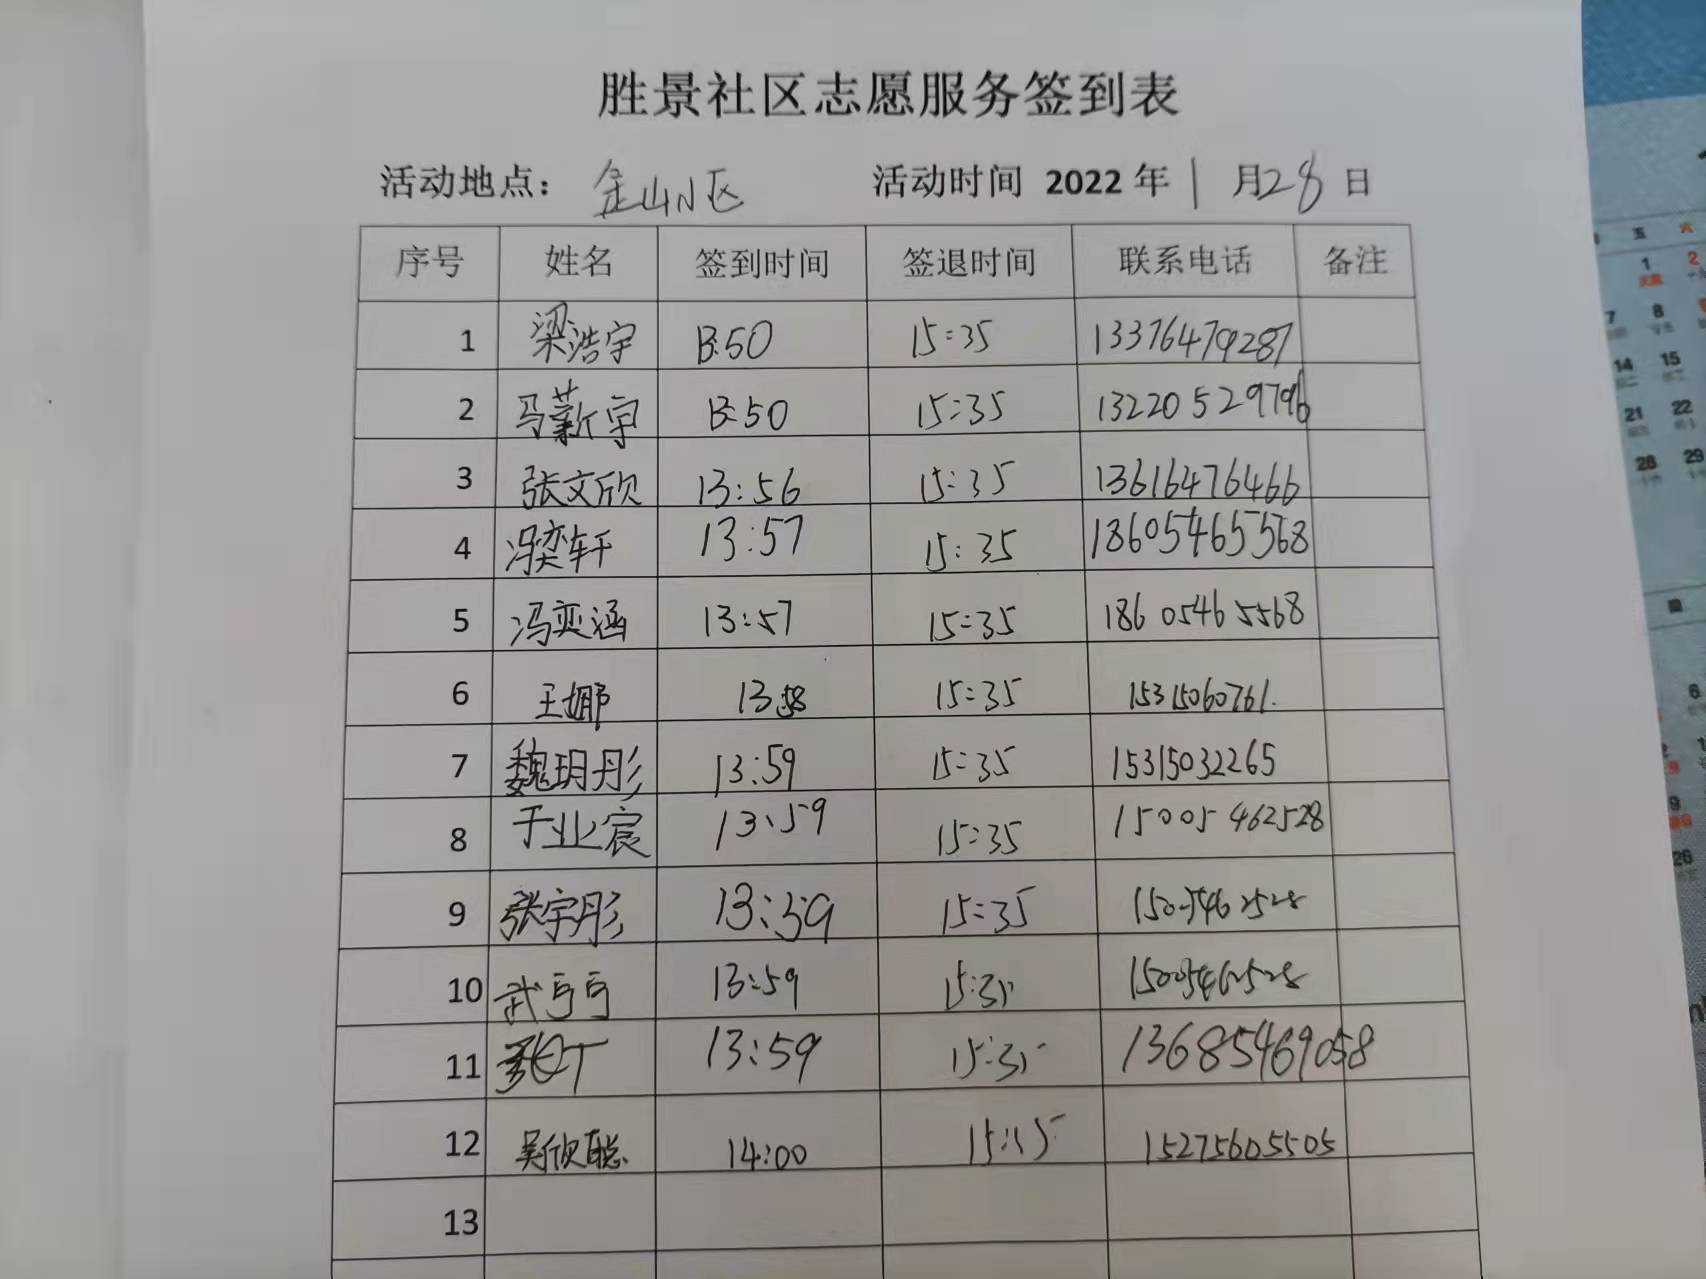 胜景社区志愿服务签到表
活动地点： 金山小区 活动时间 2022 年 1 月 28 日
序号 姓名 签到时间 签退时间 联系电话 备注
1 梁浩宇 13:50 15:35 13376479287
2 马薪宇 13:50 15:35 13220529796
3 张文欣 13:56 15:35 13616476466
4 冯奕轩 13:57 15:35 18605465568
5 冯奕涵 13:57 15:35 18605465568
6 王娜 13:58 15:35 15315060761.
7 魏玥彤 13:59 15:35 15315032265
8 于业宸 13:59 15:35 15005462528
9 张宇彤 13:59 15:35 15005462528
10 武 13:59 15:35 15005462528
11 13:59 15:35 13685469058
12 吴欣聪 14:00 15275605505
13